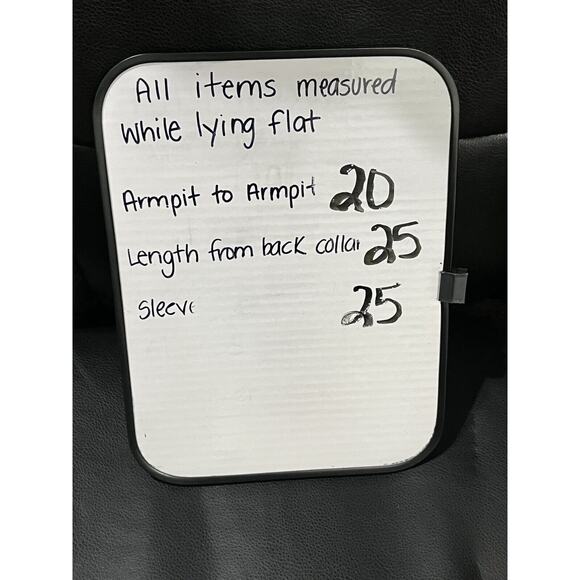 All items measured
while lying flat
Armpit to Armpit 20
Length from back collar 25
Sleeve 25